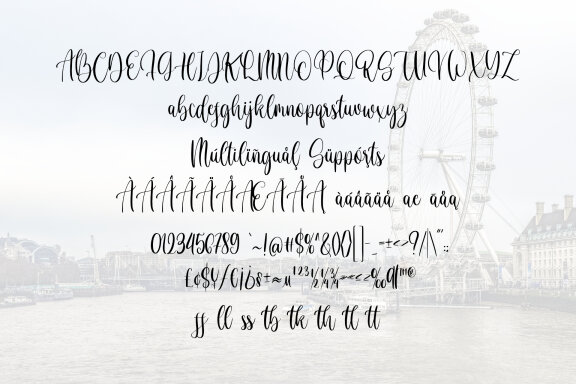 ABCDEFGHIJKLMNOPQRSTUVWXYZ
abcdefghijklmnopqrstuvwxyz
Múltilíñguåļ Süppọrts
ÀÁÂÃÄÅÆĀĂÅĄ àáâãäå æ āåą
0123456789 `~!@#$%^&()()[]-_=±<>?/|\"':;
£¢$¥/C¡b8±≈µ¹²³½¼¾«»<>‰¶™®
ff ll ss tb tk th tl tt